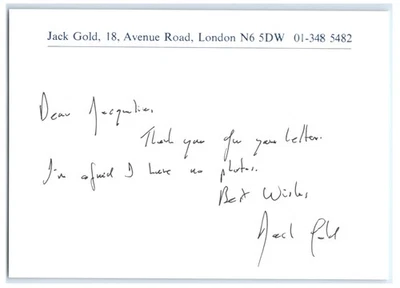 Jack Gold, 18, Avenue Road, London N6 5DW 01-348 5482
Dear Jacqueline,
Thank you for your letter.
I'm afraid I have no photos.
Best Wishes
Jack Gold